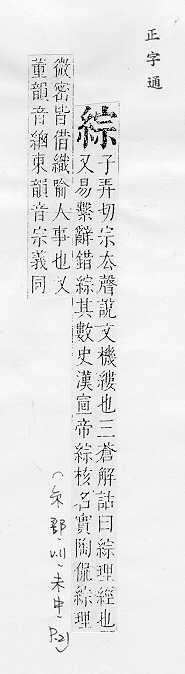 正字通
綜
子弄切宗厺聲說文機縷也三蒼解詁曰綜理經也
又易繫辭錯綜其數史漢宣帝綜核名實陶侃綜理
微密皆借織喻人事也又
董韻音緫東韻音宗義同
(糸部·未中·P.2)